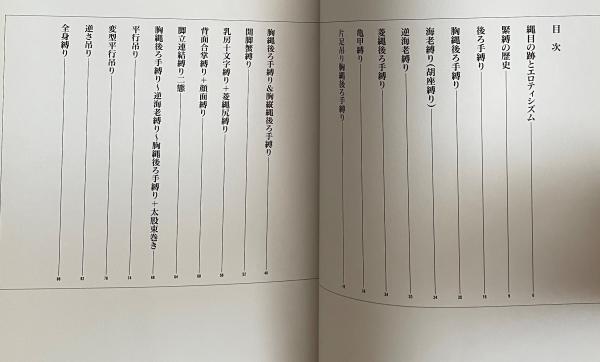 目次
縄目の跡とエロティシズム 6
緊縛の歴史 9
後ろ手縛り 16
胸縄後ろ手縛り 20
海老縛り(胡座縛り) 24
逆海老縛り 30
菱縄縛り 34
亀甲縛り
片足吊り胸縄後ろ手縛り
胸縄後ろ手縛り&胸縦縄後ろ手縛り 48
開脚蟹縛り 52
乳房十文字縛り+菱縄尻縛り 56
背面合掌縛り+顔面縛り 60
脚立連結縛り二態 64
胸縄後ろ手縛り〜逆海老縛り〜胸縄後ろ手縛り+太股束巻き 68
平行吊り 74
変型平行吊り 78
逆さ吊り 82
全身縛り